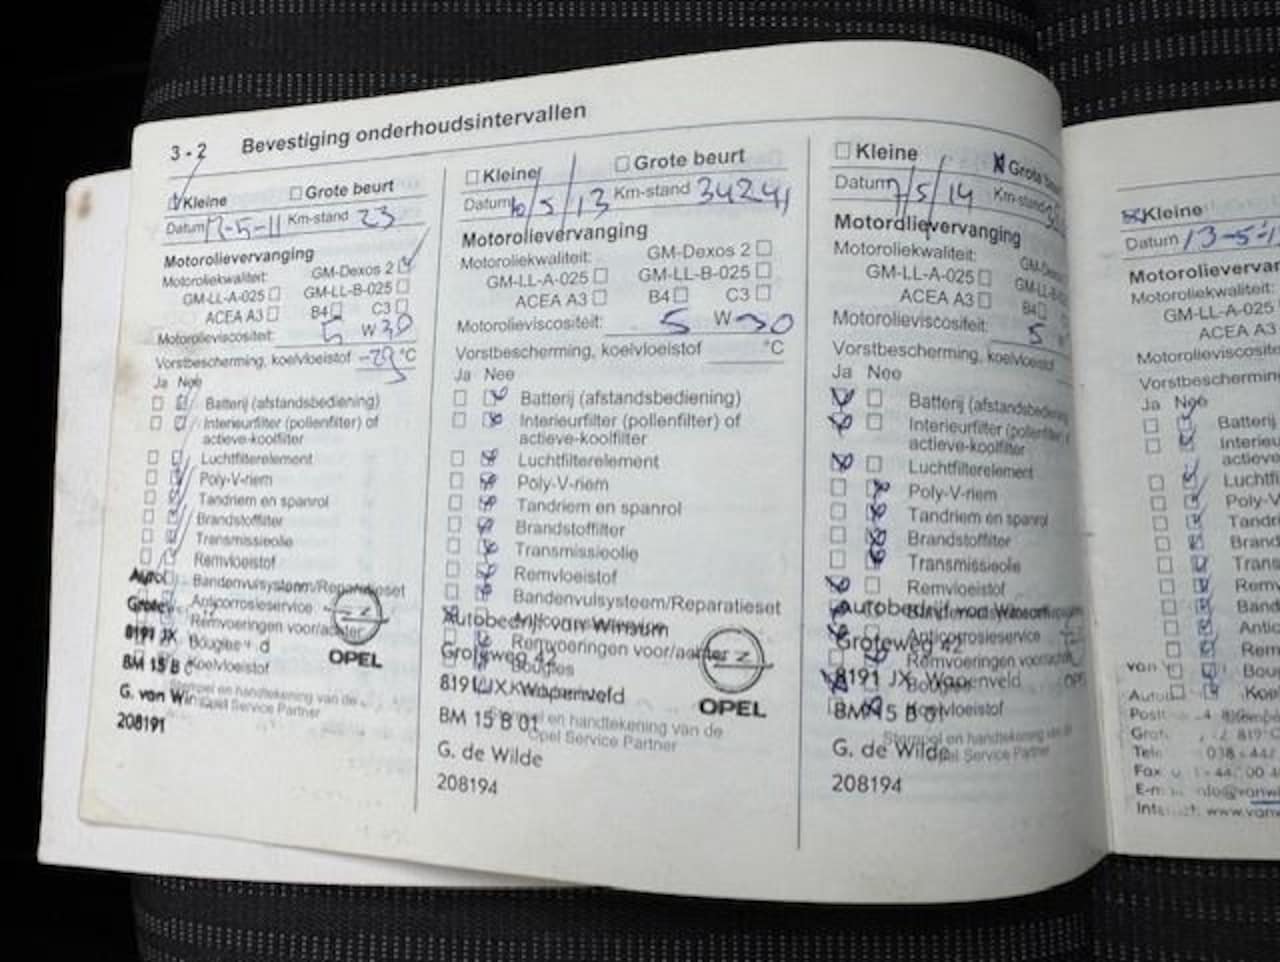 3 - 2 Bevestiging onderhoudsintervallen
Kleine Grote beurt
Datum 12-5-11 Km-stand 23
Motorolievervanging
Motoroliekwaliteit: GM-Dexos 2
GM-LL-A-025 GM-LL-B-025
ACEA A3 B4 C3
Motorolieviscositeit: 5 W 30
Vorstbescherming, koelvloeistof -29 °C
Ja Nee
Batterij (afstandsbediening)
Interieurfilter (pollenfilter) of
actieve-koolfilter
Luchtfilterelement
Poly-V-riem
Tandriem en spanrol
Brandstoffilter
Transmissieolie
Remvloeistof
Bandenvulsysteem/Reparatieset
Anticorrosieservice
Remvoeringen voor/achter
Bougies
Koelvloeistof
Stempel en handtekening van de
Opel Service Partner
8191 JX
BM 15 B
G. van Win
208191
OPEL
Kleine Grote beurt
Datum 10/5/13 Km-stand 34241
Motorolievervanging
Motoroliekwaliteit: GM-Dexos 2
GM-LL-A-025 GM-LL-B-025
ACEA A3 B4 C3
Motorolieviscositeit: 5 W 30
Vorstbescherming, koelvloeistof °C
Ja Nee
Batterij (afstandsbediening)
Interieurfilter (pollenfilter) of
actieve-koolfilter
Luchtfilterelement
Poly-V-riem
Tandriem en spanrol
Brandstoffilter
Transmissieolie
Remvloeistof
Bandenvulsysteem/Reparatieset
Autobedrijf van Winsum
Remvoeringen voor/achter
Groteweg 42
Bougies
8191 JX Wapenveld
BM 15 B 01
Stempel en handtekening van de
Opel Service Partner
G. de Wilde
208194
OPEL
Kleine Grote beurt
Datum 7/5/14 Km-stand
Motorolievervanging
Motoroliekwaliteit:
GM-LL-A-025
ACEA A3 B4
Motorolieviscositeit: 5
Vorstbescherming, koelvloeistof
Ja Nee
Batterij (afstandsbediening)
Interieurfilter (pollenfilter)
actieve-koolfilter
Luchtfilterelement
Poly-V-riem
Tandriem en spanrol
Brandstoffilter
Transmissieolie
Remvloeistof
Autobedrijf van Winsum
Anticorrosieservice
Groteweg 42
Remvoeringen voor/achter
8191 JX Wapenveld
Bougies
BM 15 B 01
Koelvloeistof
Stempel en handtekening van de
G. de Wilde
Opel Service Partner
208194
Kleine
Datum 13-5-1
Motorolievervan
Motoroliekwaliteit:
GM-LL-A-025
ACEA A3
Motorolieviscosite
Vorstbescherming
Ja Nee
Batterij
Interieu
actieve
Luchtfi
Poly-V
Tandr
Brand
Trans
Remv
Band
Antic
Rem
Bou
Koe